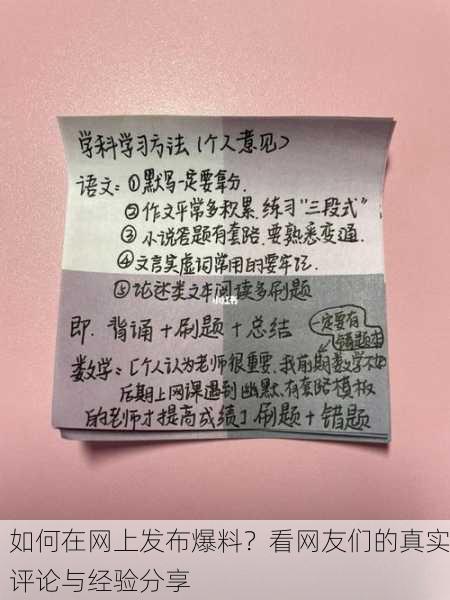 学科学习方法（个人意见）
语文：①默写一定要拿分.
②作文平常多积累.练习“三段式”
③小说答题有套路.要熟悉变通.
④文言实虚词常用的要牢记.
小红书
⑤论述类文本阅读多刷题
即.背诵+刷题+总结
一定要有
错题本
数学：[个人认为老师很重要.我前期数学不好
后期上网课遇到幽默.有套路模板
的老师才提高成绩]刷题+错题
如何在网上发布爆料？看网友们的真实
评论与经验分享